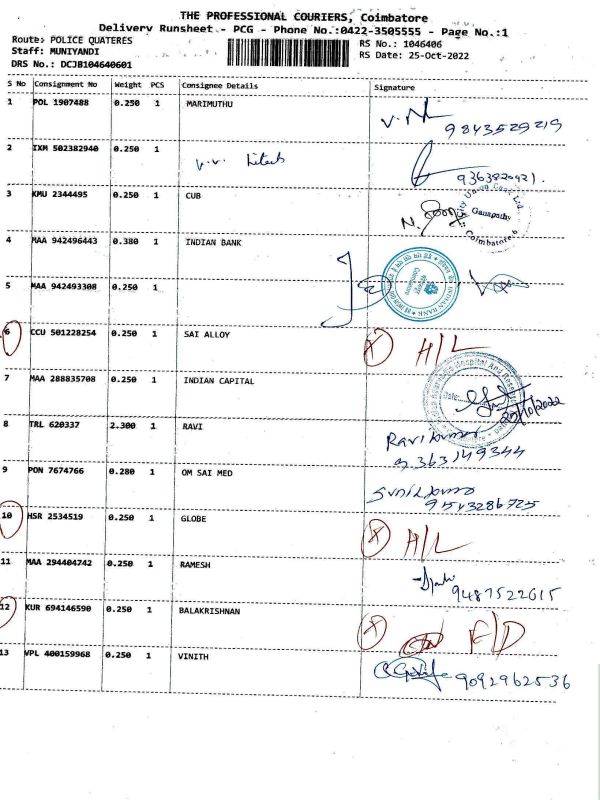 THE PROFESSIONAL COURIERS, Coimbatore
Delivery Runsheet - PCG - Phone No.:0422-3505555 - Page No.:1
Route: POLICE QUATERES
RS No.: 1046406
Staff: MUNIYANDI
RS Date: 25-Oct-2022
DRS No.: DCJB104640601
S No Consignment No Weight PCS Consignee Details Signature
1 POL 1907488 0.250 1 MARIMUTHU
9843529219
2 IXM 502382940 0.250 1
9363820921.
3 KMU 2344495 0.250 1 CUB
Ganapathy
Coimbatore-6
4 MAA 942496443 0.380 1 INDIAN BANK
INDIAN BANK
5 MAA 942493308 0.250 1
6 CCU 501228254 0.250 1 SAI ALLOY X H/L
7 MAA 288835708 0.250 1 INDIAN CAPITAL
25/10/2022
8 TRL 620337 2.300 1 RAVI Ravikumar
9363149344
9 PON 7674766 0.280 1 OM SAI MED
9543286725
10 HSR 2534519 0.250 1 GLOBE X H/L
11 MAA 294404742 0.250 1 RAMESH
9487522615
12 KUR 694146590 0.250 1 BALAKRISHNAN X F/D
13 VPL 400159968 0.250 1 VINITH
9092962536